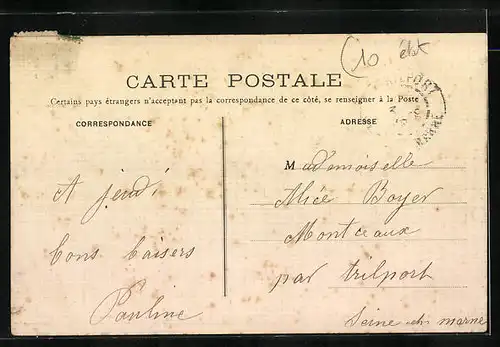 (10 ébt
CARTE POSTALE
Certains pays étrangers n'acceptant pas la correspondance de ce côté, se renseigner à la Poste
CORRESPONDANCE
ADRESSE
MARNE
A jeudi
bons baisers
Pauline
Mademoiselle
Alice Boyer
Montceaux
par trilport
Seine et marne